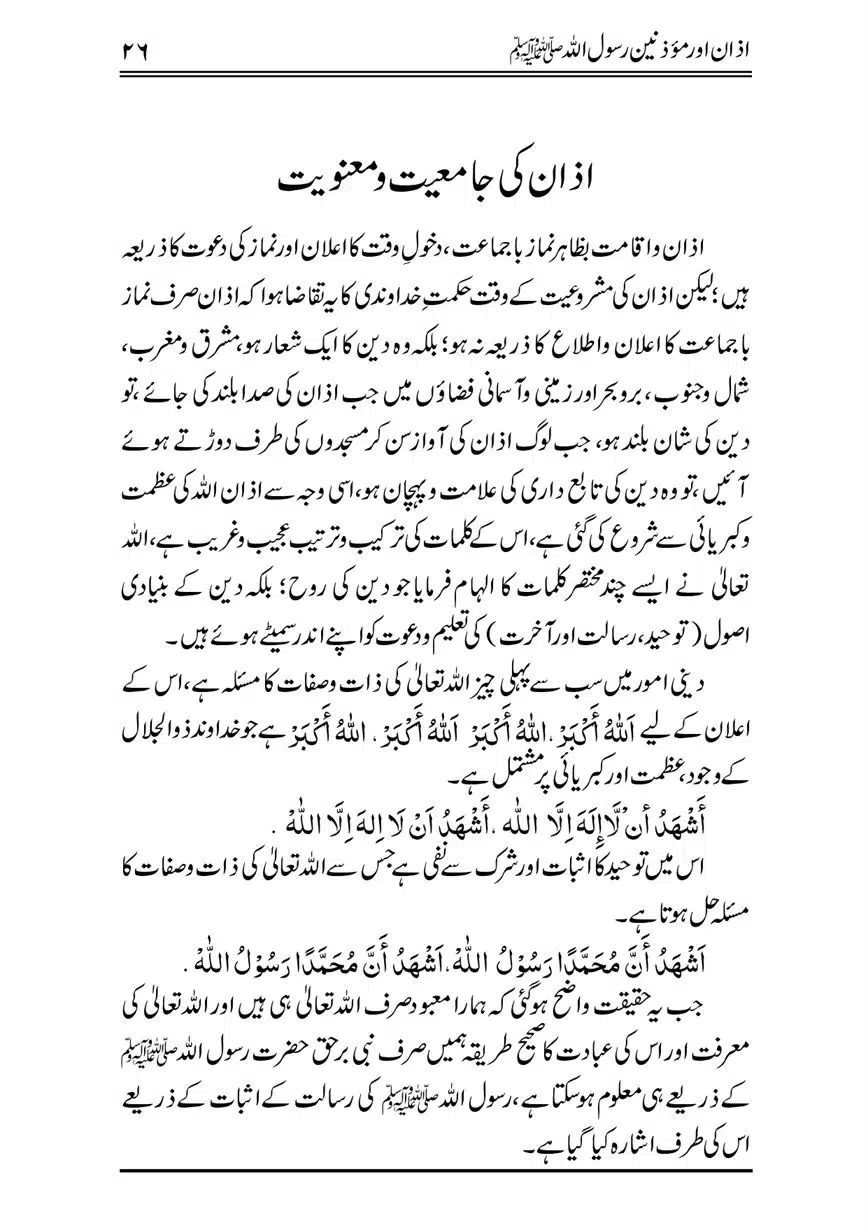 اذان اور مؤذنین رسول اللہ ﷺ ۲۶
اذان کی جامعیت و معنویت
اذان واقامت بظاہر نماز باجماعت، دخولِ وقت کا اعلان اور نماز کی دعوت کا ذریعہ
ہیں؛ لیکن اذان کی مشروعیت کے وقت حکمتِ خداوندی کا یہ تقاضا ہوا کہ اذان صرف نماز
باجماعت کا اعلان واطلاع کا ذریعہ نہ ہو؛ بلکہ وہ دین کا ایک شعار ہو، مشرق ومغرب،
شمال وجنوب، بروبحر اور زمینی وآسمانی فضاؤں میں جب اذان کی صدا بلند کی جائے، تو
دین کی شان بلند ہو، جب لوگ اذان کی آواز سن کر مسجدوں کی طرف دوڑتے ہوئے
آئیں، تو وہ دین کی تابع داری کی علامت و پہچان ہو، اسی وجہ سے اذان اللہ کی عظمت
وکبریائی سے شروع کی گئی ہے، اس کے کلمات کی ترکیب وترتیب عجیب وغریب ہے، اللہ
تعالیٰ نے ایسے چند مختصر کلمات کا الہام فرمایا جو دین کی روح؛ بلکہ دین کے بنیادی
اصول (توحید، رسالت اور آخرت) کی تعلیم ودعوت کو اپنے اندر سمیٹے ہوئے ہیں۔
دینی امور میں سب سے پہلی چیز اللہ تعالیٰ کی ذات وصفات کا مسئلہ ہے، اس کے
اعلان کے لیے اَللهُ أَكْبَرْ، اللهُ أَكْبَرْ اَللهُ أَكْبَرْ، اللهُ أَكْبَرْ ہے جو خداوند ذوالجلال
کے وجود، عظمت اور کبریائی پر مشتمل ہے۔
أَشْهَدُ أنْ لَّا إِلَهَ اِلَّا اللّٰه، أَشْهَدُ اَنْ لَا اِلهَ اِلَّا اللّٰهْ .
اس میں توحید کا اثبات اور شرک سے نفی ہے جس سے اللہ تعالیٰ کی ذات وصفات کا
مسئلہ حل ہوتا ہے۔
اَشْهَدُ أَنَّ مُحَمَّدًا رَسُوْلُ اللّٰهْ، اَشْهَدُ أَنَّ مُحَمَّدًا رَسُوْلُ اللّٰهْ .
جب یہ حقیقت واضح ہوگئی کہ ہمارا معبود صرف اللہ تعالیٰ ہی ہیں اور اللہ تعالیٰ کی
معرفت اور اس کی عبادت کا صحیح طریقہ ہمیں صرف نبی برحق حضرت رسول اللہ ﷺ
کے ذریعے ہی معلوم ہوسکتا ہے، رسول اللہ ﷺ کی رسالت کے اثبات کے ذریعے
اس کی طرف اشارہ کیا گیا ہے۔